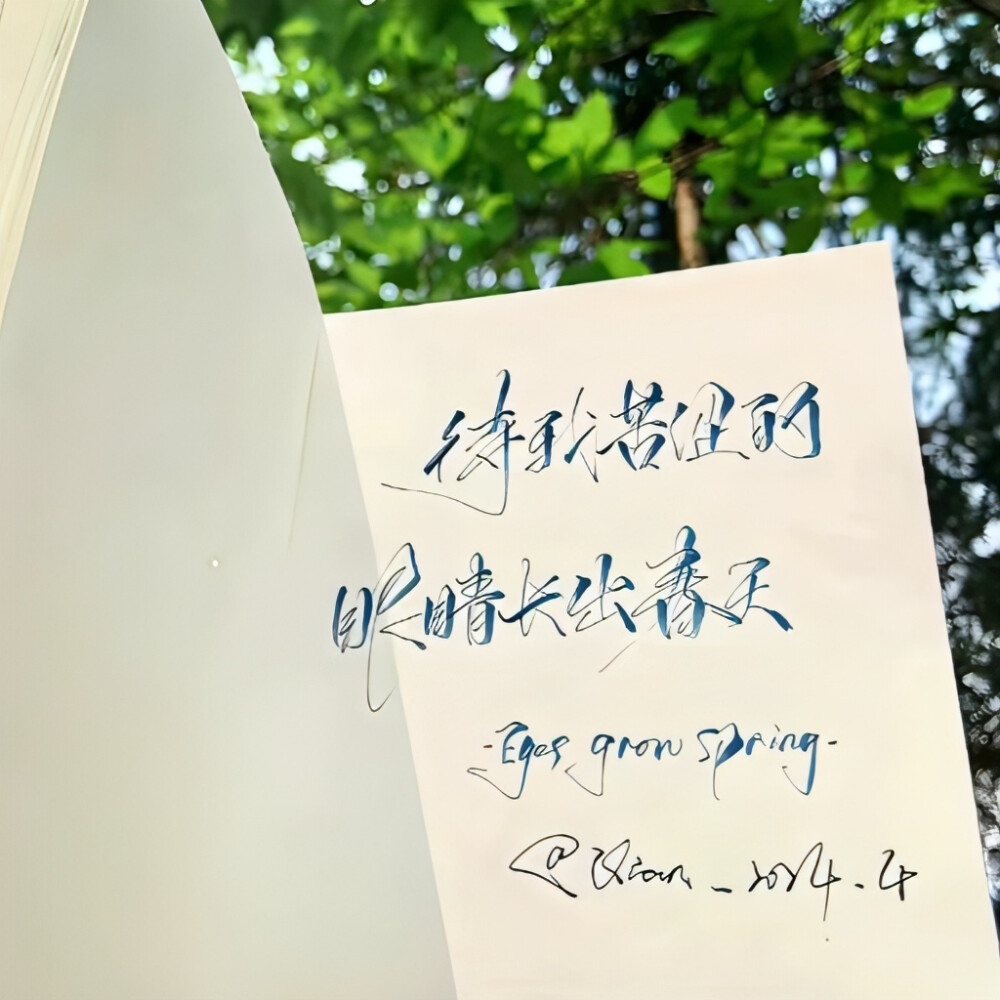 待我苦涩的
眼睛长出春天
-Eyes grow spring-
@ _2024.4